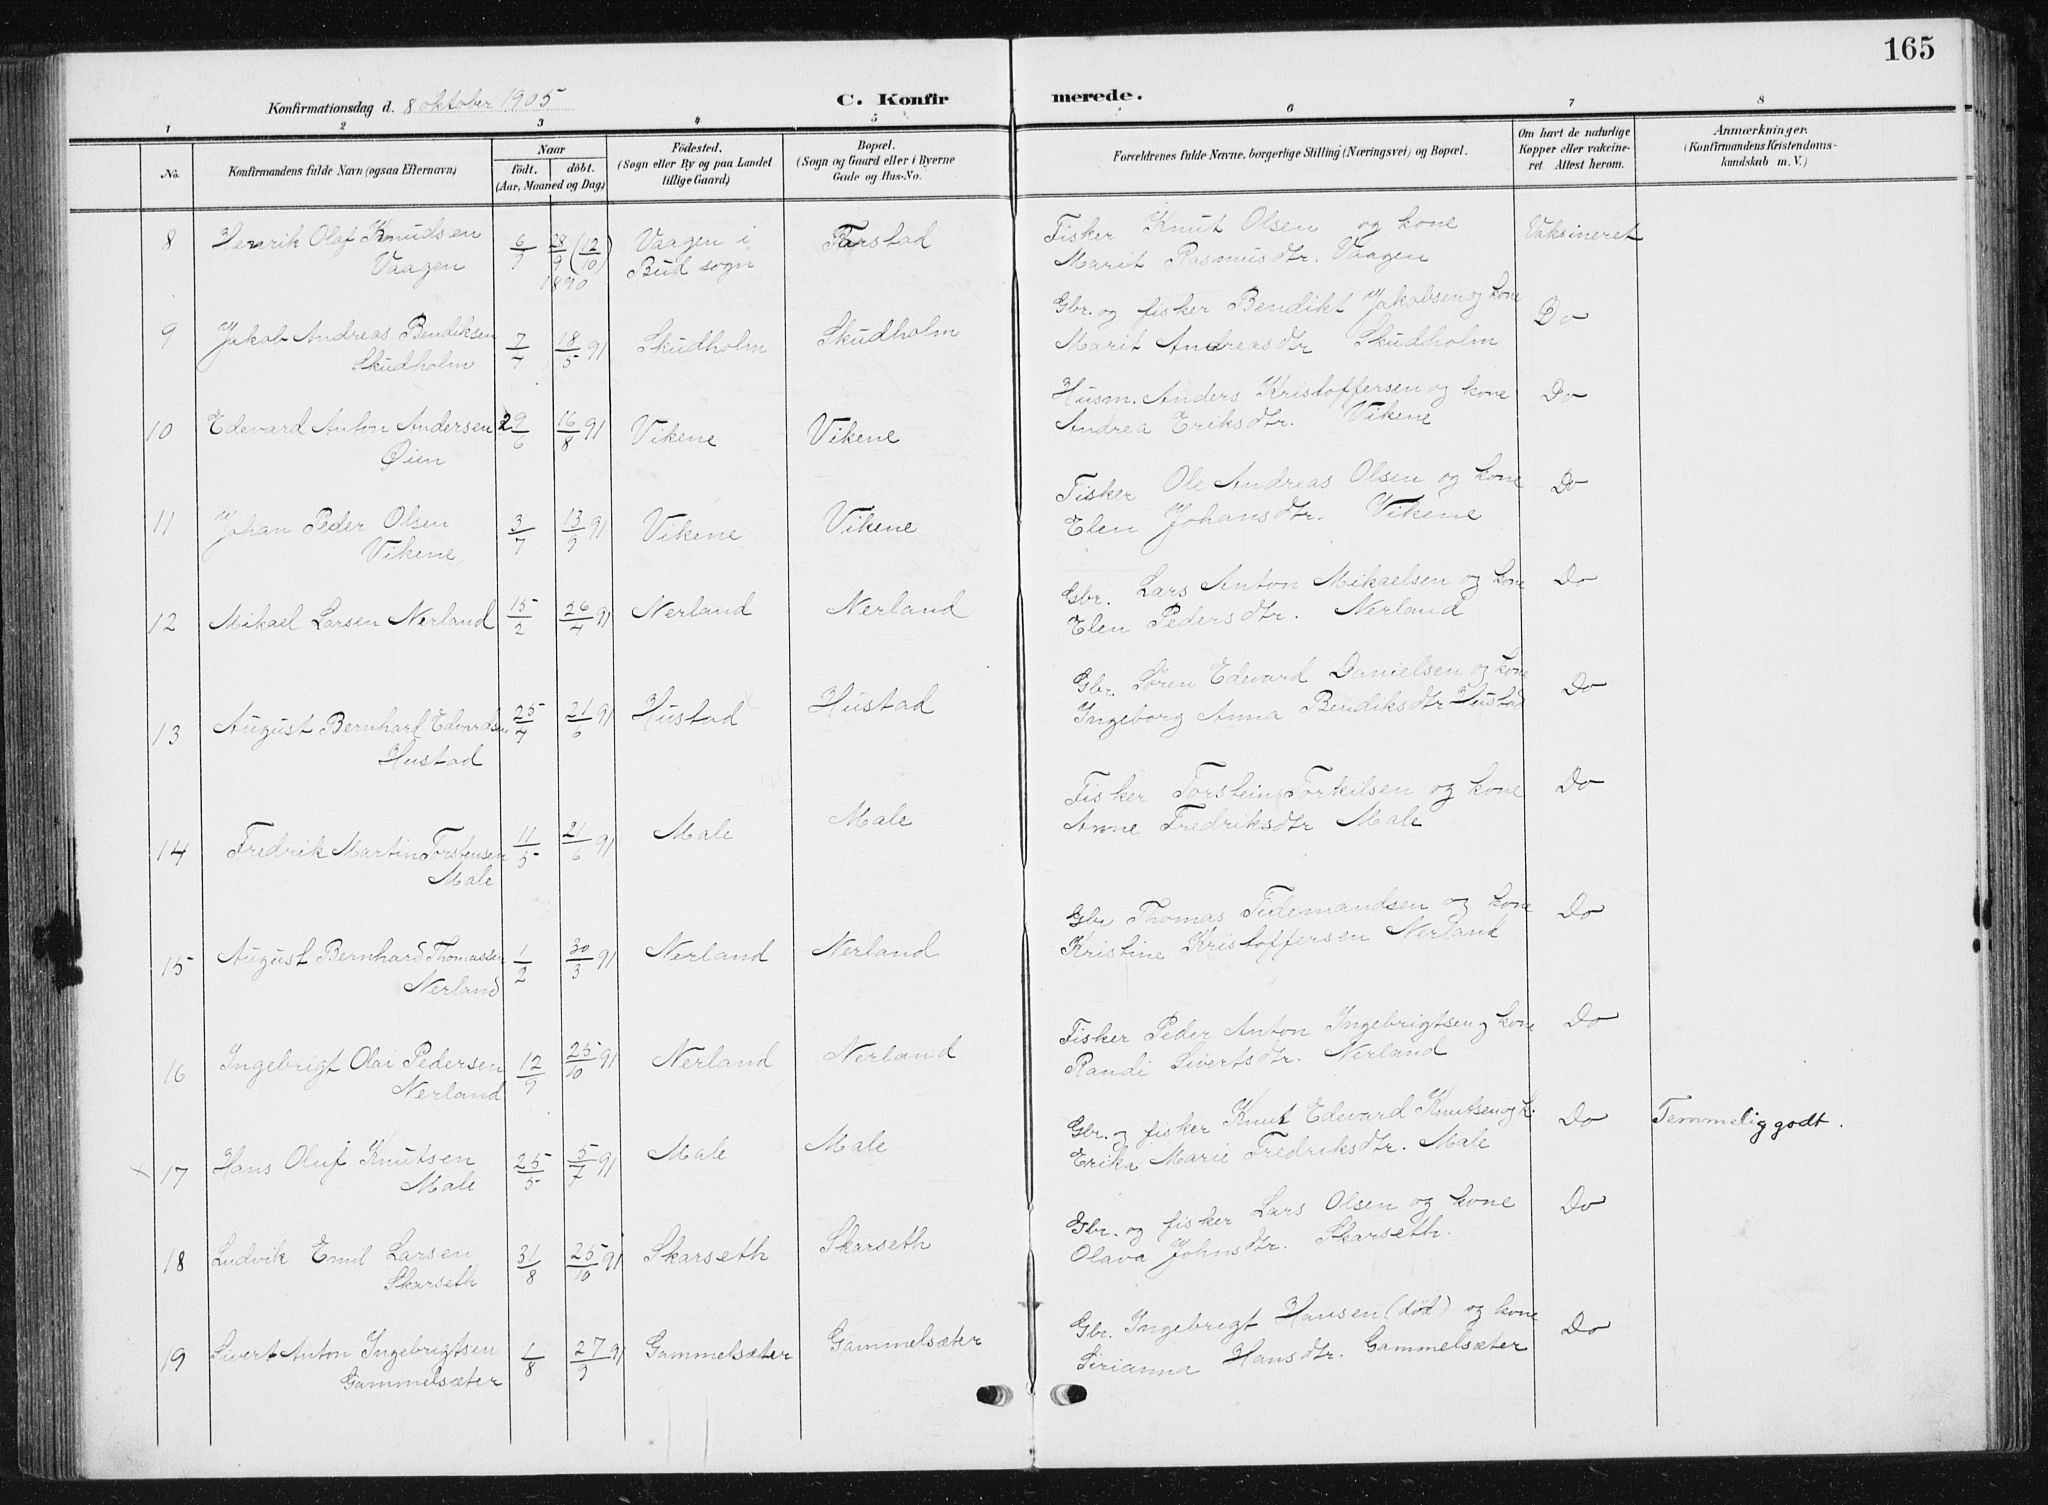 165
Konfirmationsdag d. 8 oktober 1905
C. Konfir merede.
1 2 3 4 5 6 7 8
No.
Konfirmandens fulde Navn (ogsaa Efternavn)
Naar
födt. döbt.
(Aar, Maaned og Dag)
Födested.
(Sogn eller By og paa Landet
tillige Gaard)
Bopæl.
(Sogn og Gaard eller i Byerne
Gade og Hus-No.
Forældrenes fulde Navne, borgerlige Stilling (Næringsvei) og Bopæl.
Om havt de naturlige
Kopper eller vakcine-
ret. Attest herom.
Anmærkninger.
(Konfirmandens Kristendoms-
kundskab m. V.)
8 Henrik Olaf Knudsen 6/9 28/9 (12/10) Vaagen i Farstad Fisker Knut Olsen og kone Vaksineret
Vaagen 1890 Bud sogn Marit Rasmusdtr. Vaagen
9 Jakob Andreas Bendiksen 7/4 18/5 91 Skudholm Skudholm Gbr. og fisker Bendikt Jakobsen og kone Do
Skudholm Marit Andreasdtr Skudholm
10 Edevard Anton Andersen 29/6 16/8 91 Vikene Vikene Husm. Anders Kristoffersen og kone Do
Øien Andrea Eriksdtr. Vikene
11 Johan Peder Olsen 3/7 13/9 91 Vikene Vikene Fisker Ole Andreas Olsen og kone Do
Vikene Elen Johansdtr. Vikene
12 Mikael Larsen Nerland 15/2 26/4 91 Nerland Nerland Gbr. Lars Anton Mikaelsen og kone Do
Elen Pedersdtr. Nerland
13 August Bernhard Edvardsen 25/4 21/6 91 Hustad Hustad Gbr. Søren Edevard Danielsen og kone Do
Hustad Ingeborg Anna Bendiksdtr Hustad
14 Fredrik Martin Torstensen 11/5 21/6 91 Male Male Fisker Torstein Torkilsen og kone Do
Male Anne Fredriksdtr Male
15 August Bernhard Thomassen 1/2 30/3 91 Nerland Nerland Gbr Thomas Tidemandsen og kone Do
Nerland Kristine Kristoffersen Nerland
16 Ingebrigt Olai Pedersen 12/9 25/10 91 Nerland Nerland Fisker Peder Anton Ingebrigtsen og kone Do
Nerland Randi Sivertsdtr. Nerland
17 Hans Oluf Knutsen 25/5 5/7 91 Male Male Gbr. og fisker Knut Edevard Knutsen og k. Do Temmelig godt.
Male Erika Marie Fredriksdtr. Male
18 Ludvik Emil Larsen 31/8 25/10 91 Skarseth Skarseth Gbr. og fisker Lars Olsen og kone Do
Skarseth Olava Johnsdtr. Skarseth.
19 Sivert Anton Ingebrigtsen 1/8 27/9 91 Gammelsæter Gammelsæter Gbr. Ingebrigt Hansen (død) og kone Do
Gammelsæter Sirianna Hansdtr. Gammelsæter